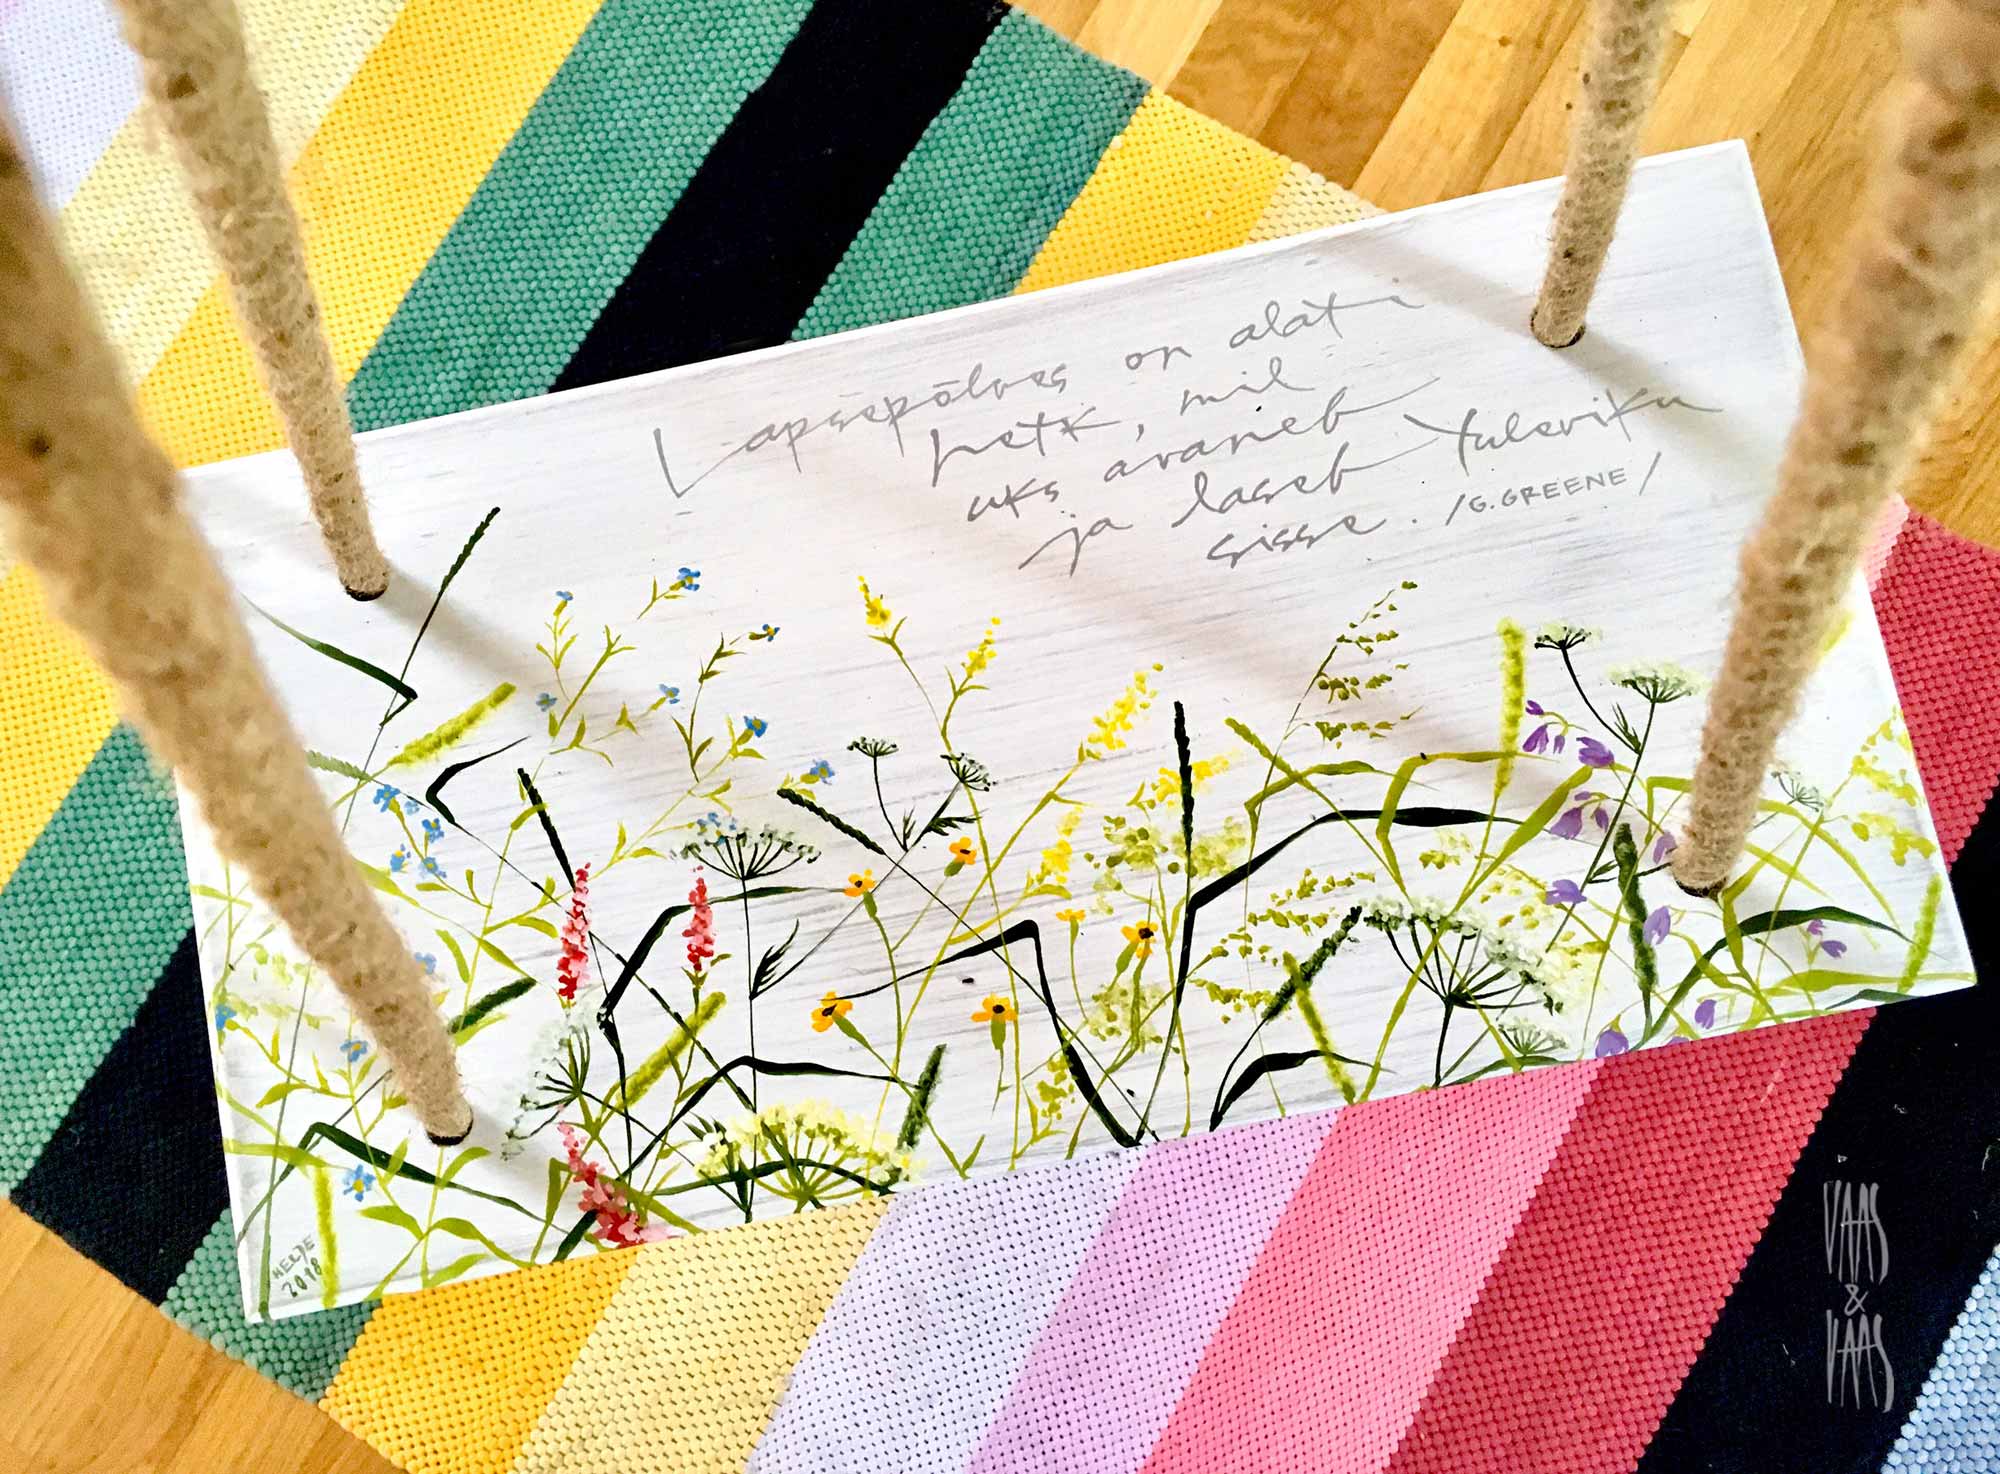 Lapsepõlves on alati
hetk, mil
uks avaneb
ja laseb tuleviku
sisse. /G. GREENE/
HELJE
2018
VAAS
&
VAAS